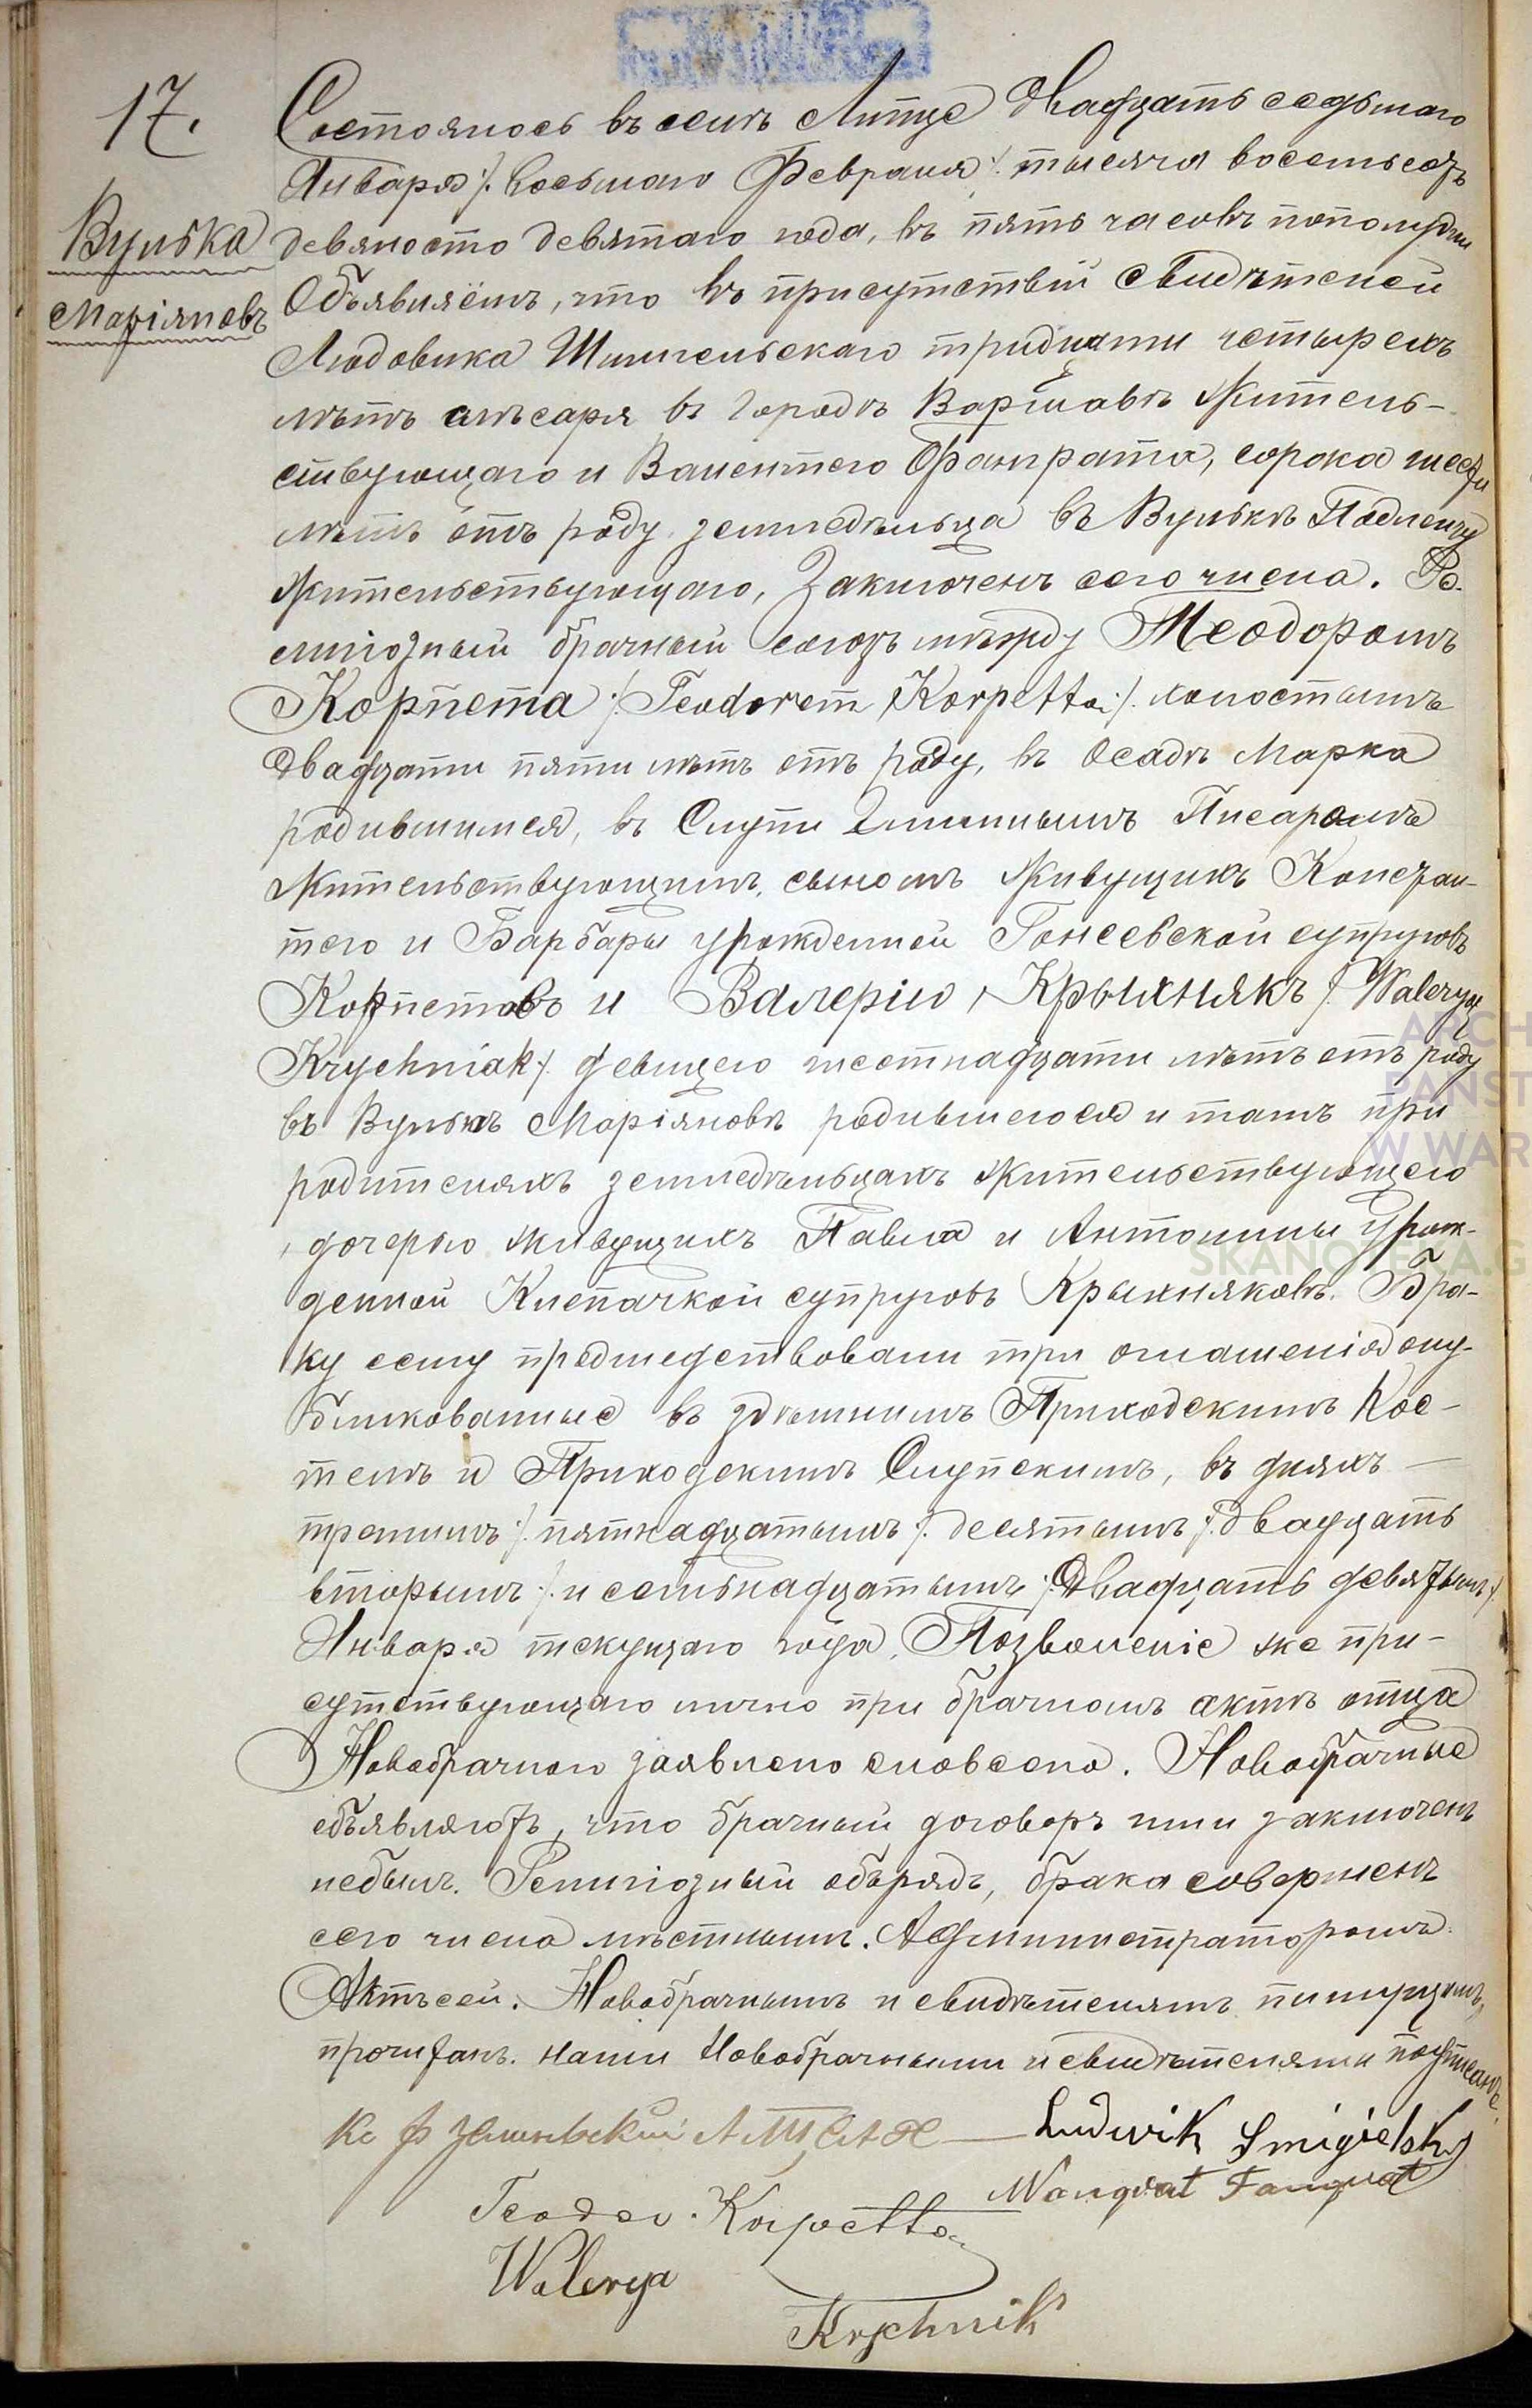 17.
Вулька
Маріяновъ
Состоялось въ семъ Липце Двадцать седьмаго
Января /: восьмаго Февраля :/ тысяча восемьсотъ
девяносто девятаго года, въ пять часовъ пополудни
Объявляемъ, что въ присутствіи свидѣтелей
Людовика Шмигельскаго тридцати четырехъ
лѣтъ слѣсаря въ Городѣ Варшавѣ житель-
ствующаго и Валентего Фанграта, сорока шести
лѣтъ отъ роду земледѣльца въ Вулькѣ
жительствующаго, Заключенъ сего числа. Ре-
лигіозный брачный союзъ между Теодоромъ
Корпетта /: Teodorem Korpetta :/ холостымъ
двадцати пяти лѣтъ отъ роду, въ Осадѣ Марка
родившимся, въ Слупи Гминнымъ Писаромъ
жительствующимъ, сыномъ живущихъ
и Барбары урожденной Гонсевской супруговъ
Корпетовъ и Валеріею Крыхнякъ /: Waleryą
Krychniak :/ девицею шестнадцати лѣтъ отъ роду
въ Вулькѣ Маріяновѣ родившеюся и тамъ при
родителяхъ земледѣльцахъ жительствующею
дочерью живущихъ Павла и Антонины урож-
денной Клепачкой супруговъ Крыхняковъ. Бра-
ку сему предшедствовали три оглашенія опу-
бликованные въ здѣшнимъ Приходскимъ Кос-
телѣ и Приходскимъ Слупскимъ, въ дняхъ —
третимъ /: пятнадцатымъ :/ десятымъ /: двадцать
вторымъ :/ и семьнадцатымъ /: Двадцать девятымъ :/
Января текущаго года. Позволеніе же при-
сутствующаго лично при брачномъ актѣ отца
Новобрачной заявлено словесно. Новобрачные
объявляютъ, что брачный договоръ ими заключенъ
небылъ. Религіозный обърядъ, брака совершенъ
сего числа мѣстнымъ. Администраторомъ.
Актъ сей. Новобрачнымъ и свидѣтелямъ
прочитанъ. нами Новобрачными и свидѣтелями подписанъ.
Кс Ф
Ludwik Smigielsky
Fangrat
Teodor. Korpetta
Walerya
Krychnik